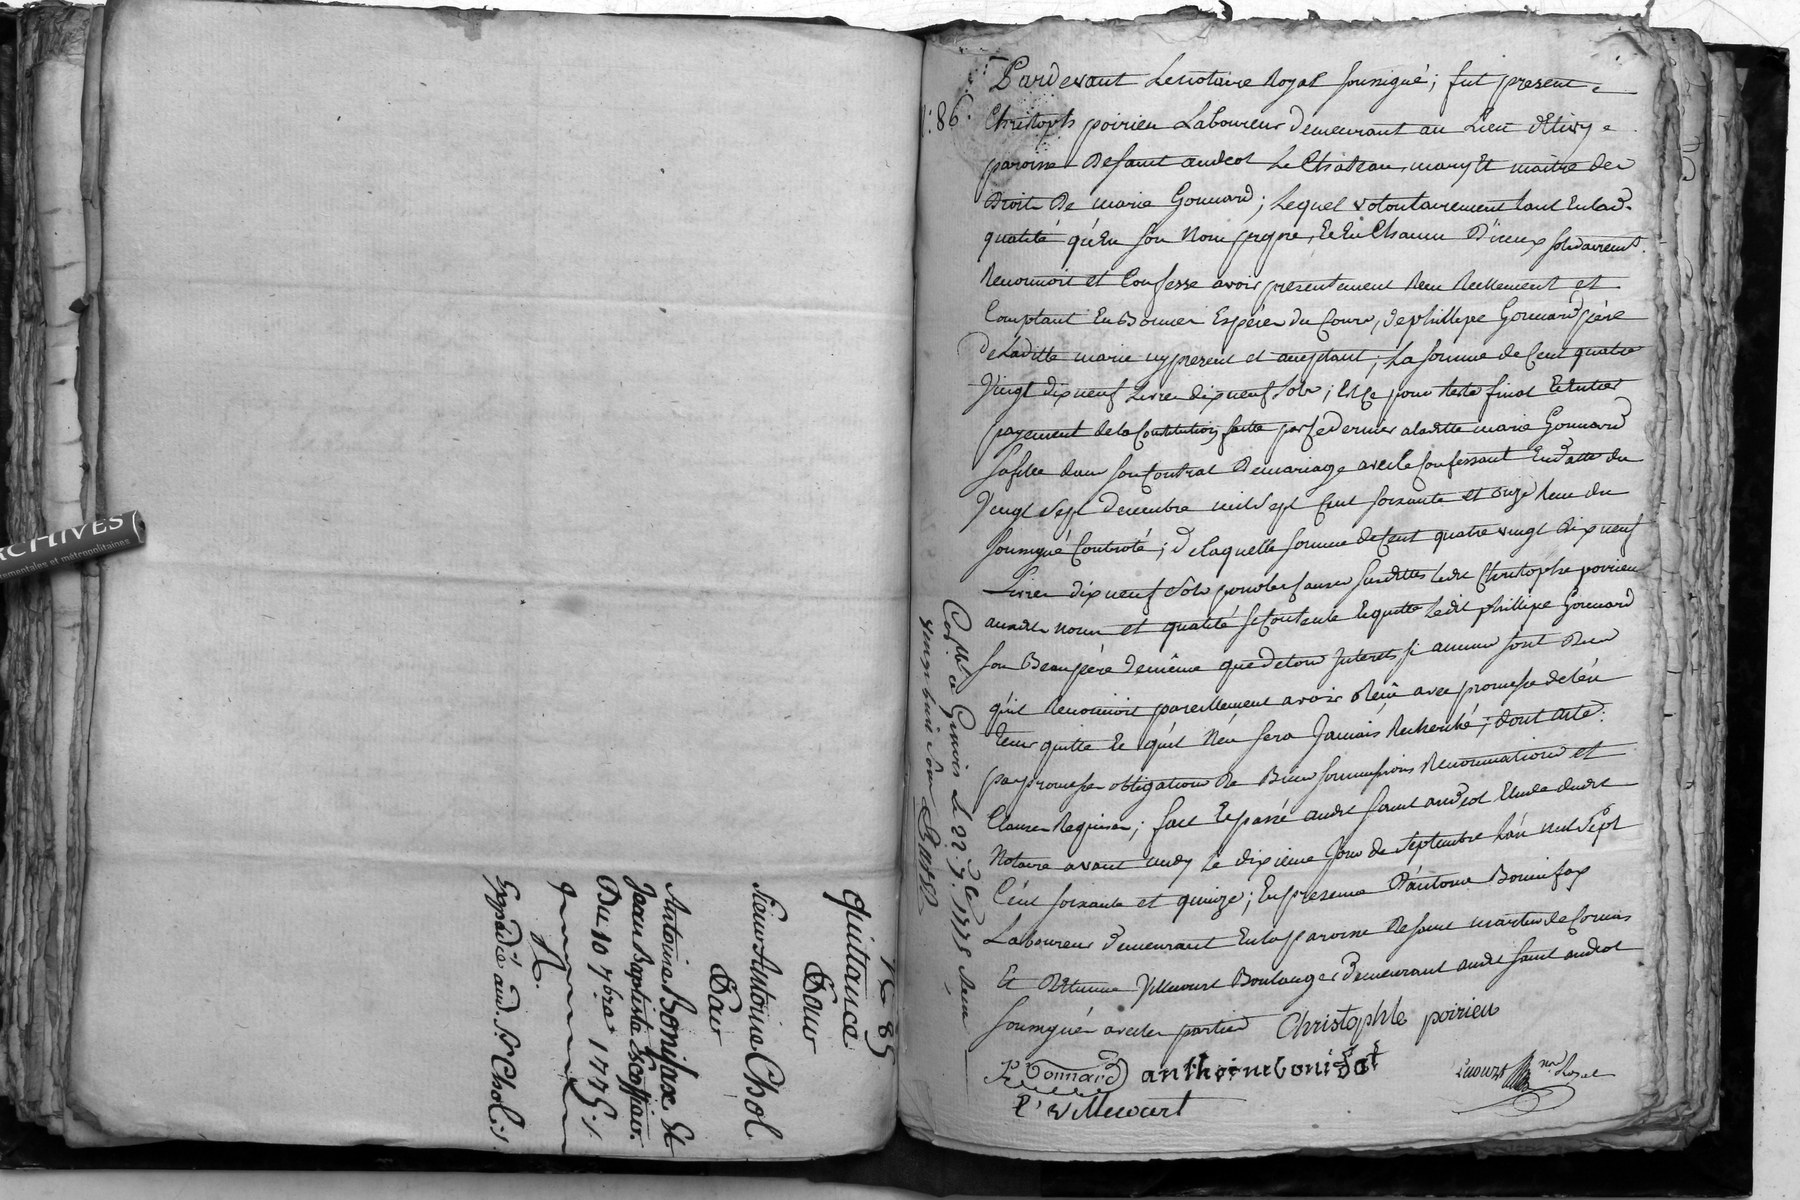 N.° 85
Quitance
Pour
Sieur Antoine Chol
Pour
Antoine Bonifaxe Et
Jean Baptiste Escoffiair.
Du 10 7bre 1775.
N.
Expédié aud. Sr Chol.
ARCHIVES
départementales et métropolitaines
N.° 86.
Pardevant Le notaire Royal soussigné ; fut present
Christoph poirieu Laboureur demeurant au Lieu
paroisse De saint andeol Le Chateau, mary Et maitre des
Droits De marie Gonnard ; Lequel volontairement tant En lad.
qualité qu'En son Nom propre, Et En Chacun D'iceux solidairemt.
Reconnoit et Confesse avoir presentement Receu Reellement et
Comptant En Bonnes Espéces du Cours, de phillipe Gonnard père
De Laditte marie icy present et acceptant, La somme de Cent quatre
Vingt dix neuf Livres dix neuf sols ; Et Ce pour Reste final Et Entier
payement de la Constitution faite par Ce dernier a laditte marie Gonnard
sa fille dans son Contrat De mariage avec le Confessant En datte du
Vingt sept decembre mil sept Cent soixante et onze Receu du
soussigné Controlé ; De laquelle somme de Cent quatre vingt dix neuf
Livres dix neuf sols pour les Causes susdittes ledit Christophe poirieu
auxdits noms et qualité se Contente Et quitte ledit phillipe Gonnard
son Beaupére de même que de tous Interets si aucuns sont Deus
qu'il Reconnoit pareillement avoir Receu avec promesse de l'en
tenir quitte Et qu'il N'en sera Jamais Recherché ; dont acte :
par promesse obligation De Biens soumissions Renonciations et
Clauses Requises ; fait Et passé audit saint andeol Etude dudit
Notaire avant midy Le dixieme Jour de septembre L'an mil sept
Cent soixante et quinze ; En presence D'antoine Bonnifax
Laboureur demeurant En la paroisse De saint martin de Cornas
Et D'Etienne Villecourt Boulanger demeurant audit saint andeol
soussignés avec les parties Christophle poirieu
P Gonnard anthoine bonifat
E Villecourt
nre Royal
Collé a Givors Le 22 7bre 1775 Receu